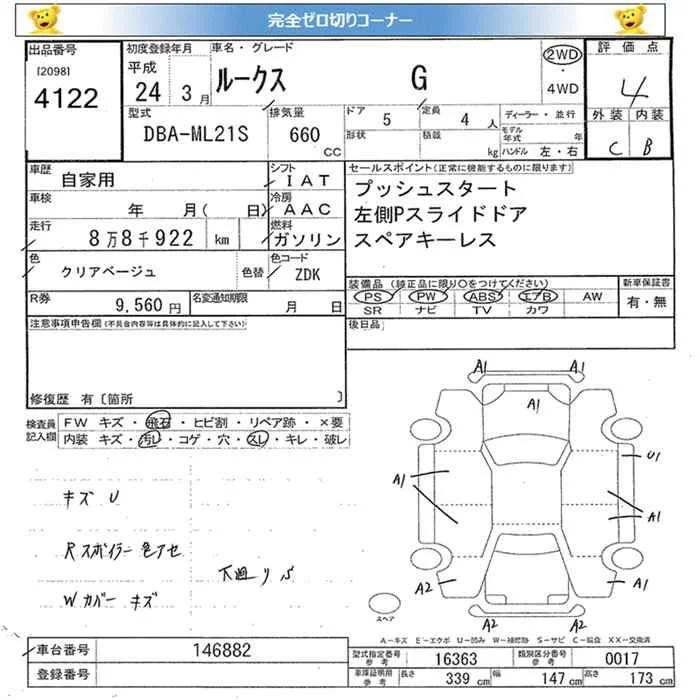 完全ゼロ切りコーナー
出品番号
[2098]
4122
初度登録年月
平成
24 3月
車名・グレード
ルークス G
2WD
・
4WD
評価点
4
外装 内装
C B
型式
DBA-ML21S
排気量
660
CC
ドア 5
定員 4 人
形状
積載 kg
ディーラー・並行
モデル年式 年
ハンドル 左・右
車歴
自家用
シフト
IAT
車検
年 月( 日)
冷房
AAC
走行
8万8千922 km
燃料
ガソリン
色
クリアベージュ
色替
色コード
ZDK
R券
9,560円
名変通知期限
月 日
セールスポイント(正常に機能するものに限ります)
プッシュスタート
左側Pスライドドア
スペアキーレス
装備品(純正品に限り○をつけてください)
PS PW ABS エアB AW
SR ナビ TV カワ
新車保証書
有・無
後日品
注意事項申告欄(不具合内容等は具体的に記入して下さい)
修復歴 有〔箇所 〕
検査員記入欄
FW キズ・飛石・ヒビ割・リペア跡・×要
内装 キズ・汚レ・コゲ・穴・スレ・キレ・破レ
キズ U
Rスポイラー色アセ
下廻りS
Wカバーキズ
A1 A1
A1
U1
A1
A1
A2 A1
A2 A2
スペア
A-キズ E-エクボ U-凹み W-補修跡 S-サビ C-腐食 XX-交換済
車台番号
146882
登録番号
型式指定番号
参考
16363
類別区分番号
参考
0017
車庫証明用
参考
長さ 339cm
幅 147cm
高さ 173cm